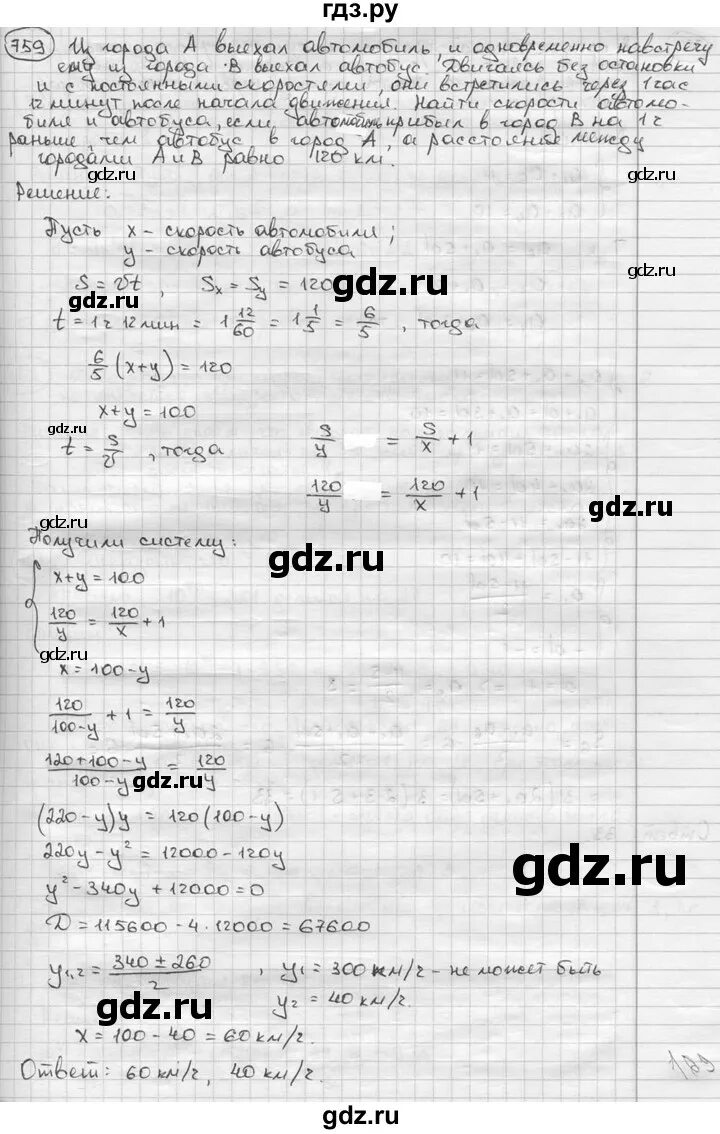 гдз.ру
759 Из города А выехал автомобиль, и одновременно навстречу
ему из города В выехал автобус. Двигаясь без остановки
и с постоянными скоростями, они встретились через 1 час
12 минут после начала движения. Найти скорости автомо-
биля и автобуса, если автомобиль прибыл в город В на 1 г
раньше, чем автобус в город А, а расстояние между
городами А и В равно 120 км.
gdz.ru
gdz.ru
Решение:
Пусть x - скорость автомобиля;
y - скорость автобуса
gdz.ru
S = vt, Sx = Sy = 120
gdz.ru
gdz.ru
t = 1 г 12 мин = 1 12/60 = 1 1/5 = 6/5, тогда
6/5 (x+y) = 120
x+y = 100
gdz.ru
gdz.ru
t = S/v, тогда S/y = S/x + 1
120/y = 120/x + 1
gdz.ru
gdz.ru
Получили систему:
gdz.ru
x+y = 100
120/y = 120/x + 1
gdz.ru
gdz.ru
x = 100-y
120/(100-y) + 1 = 120/y
(120+100-y)/(100-y) = 120/y
gdz.ru
(220-y)y = 120(100-y)
220y - y² = 12000 - 120y
gdz.ru
y² - 340y + 12000 = 0
D = 115600 - 4·12000 = 67600
y1,2 = (340 ± 260)/2, y1 = 300 км/г - не может быть
y2 = 40 км/г.
gdz.ru
gdz.ru
x = 100 - 40 = 60 км/г.
Ответ: 60 км/г, 40 км/г.
gdz.ru
gdz.ru